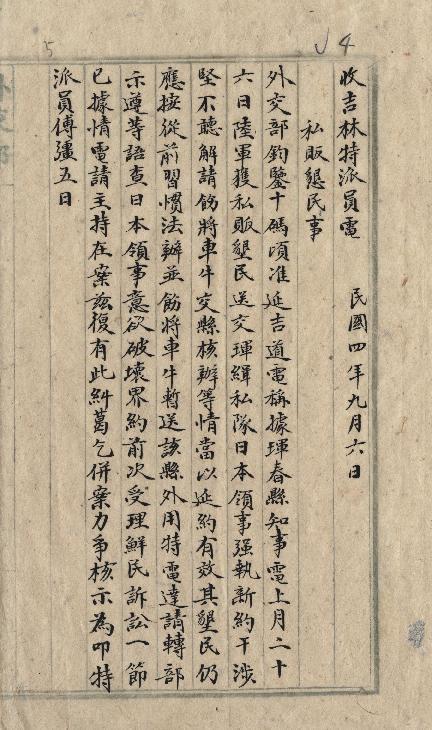 5
√4
收吉林特派員電　民國四年九月六日
私販懇民事
外交部鈞鑒十碼頃准延吉道電稱據琿春縣知事電上月二十
六日陸軍獲私販墾民送交琿緝私隊日本領事强執新約干涉
堅不聽解請飭將車牛交縣核辦等情當以延約有效其墾民仍
應按從前習慣法辦並飭將車牛暫送該縣外用特電達請轉部
示遵等語查日本領事意欲破壞界約前次受理鮮民訴訟一節
已據情電請主持在案茲復有此糾葛乞併案力爭核示為叩特
派員傅彊五日